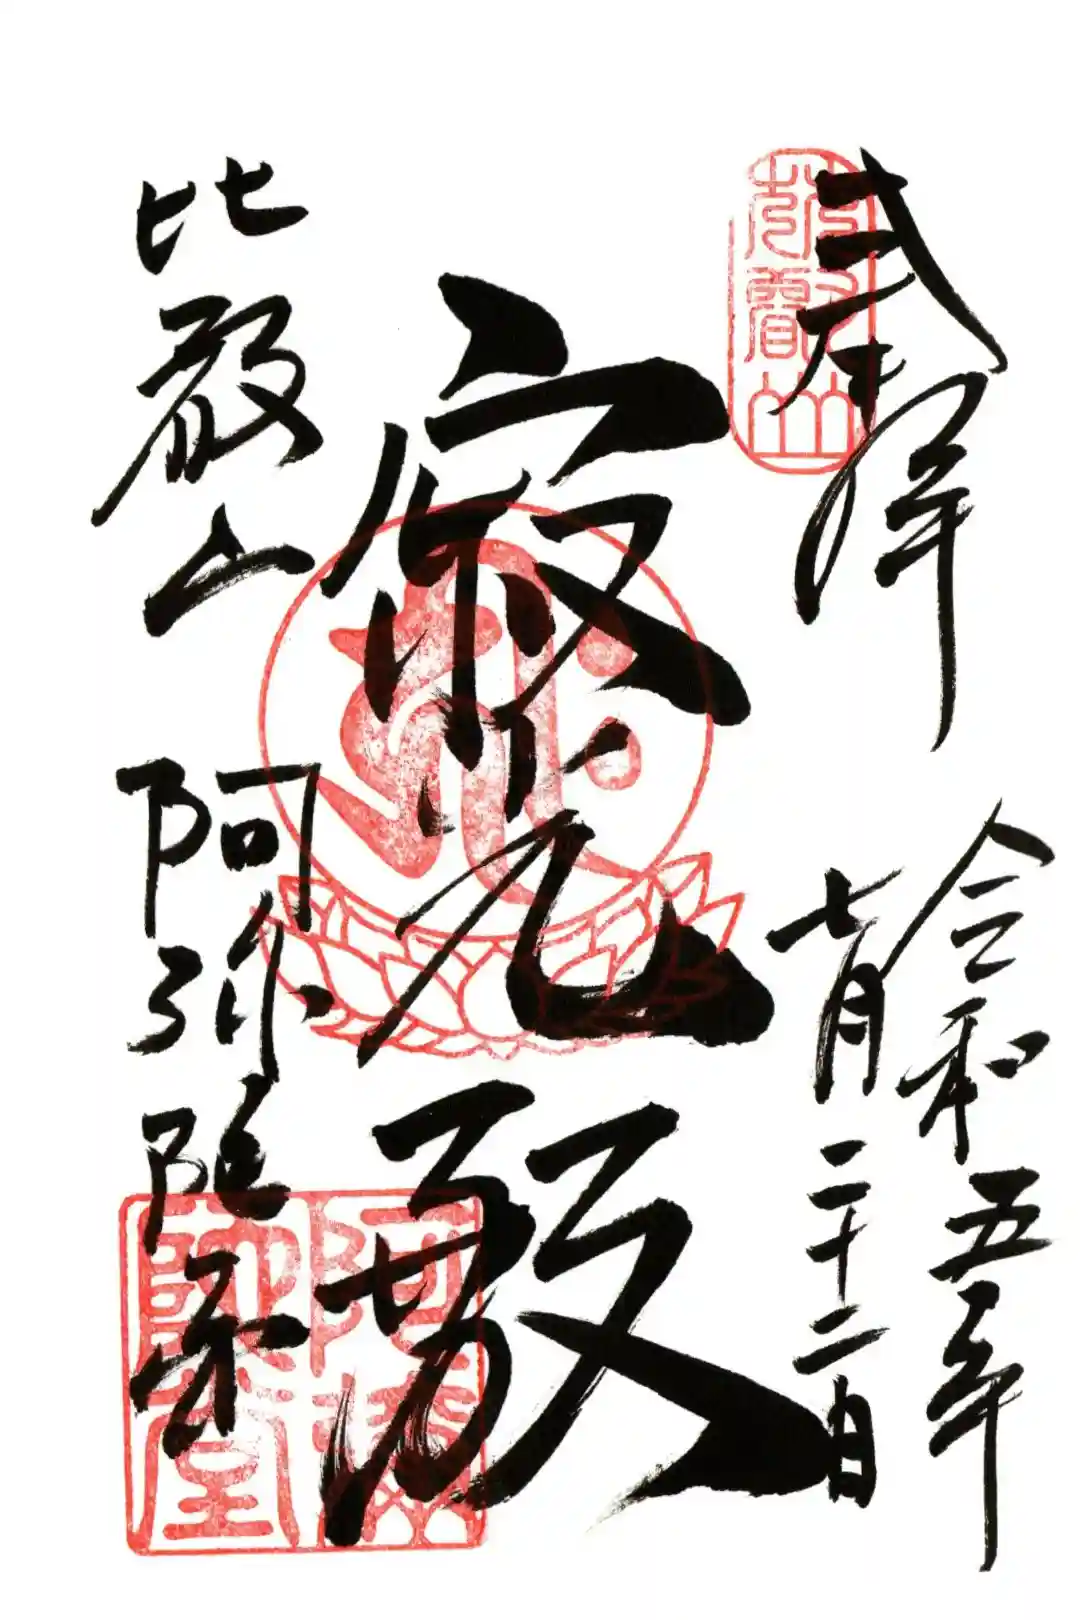 奉拝
令和五年
七月二十二日
寂光殿
比叡山
阿弥陀堂
比叡山
阿彌陀堂